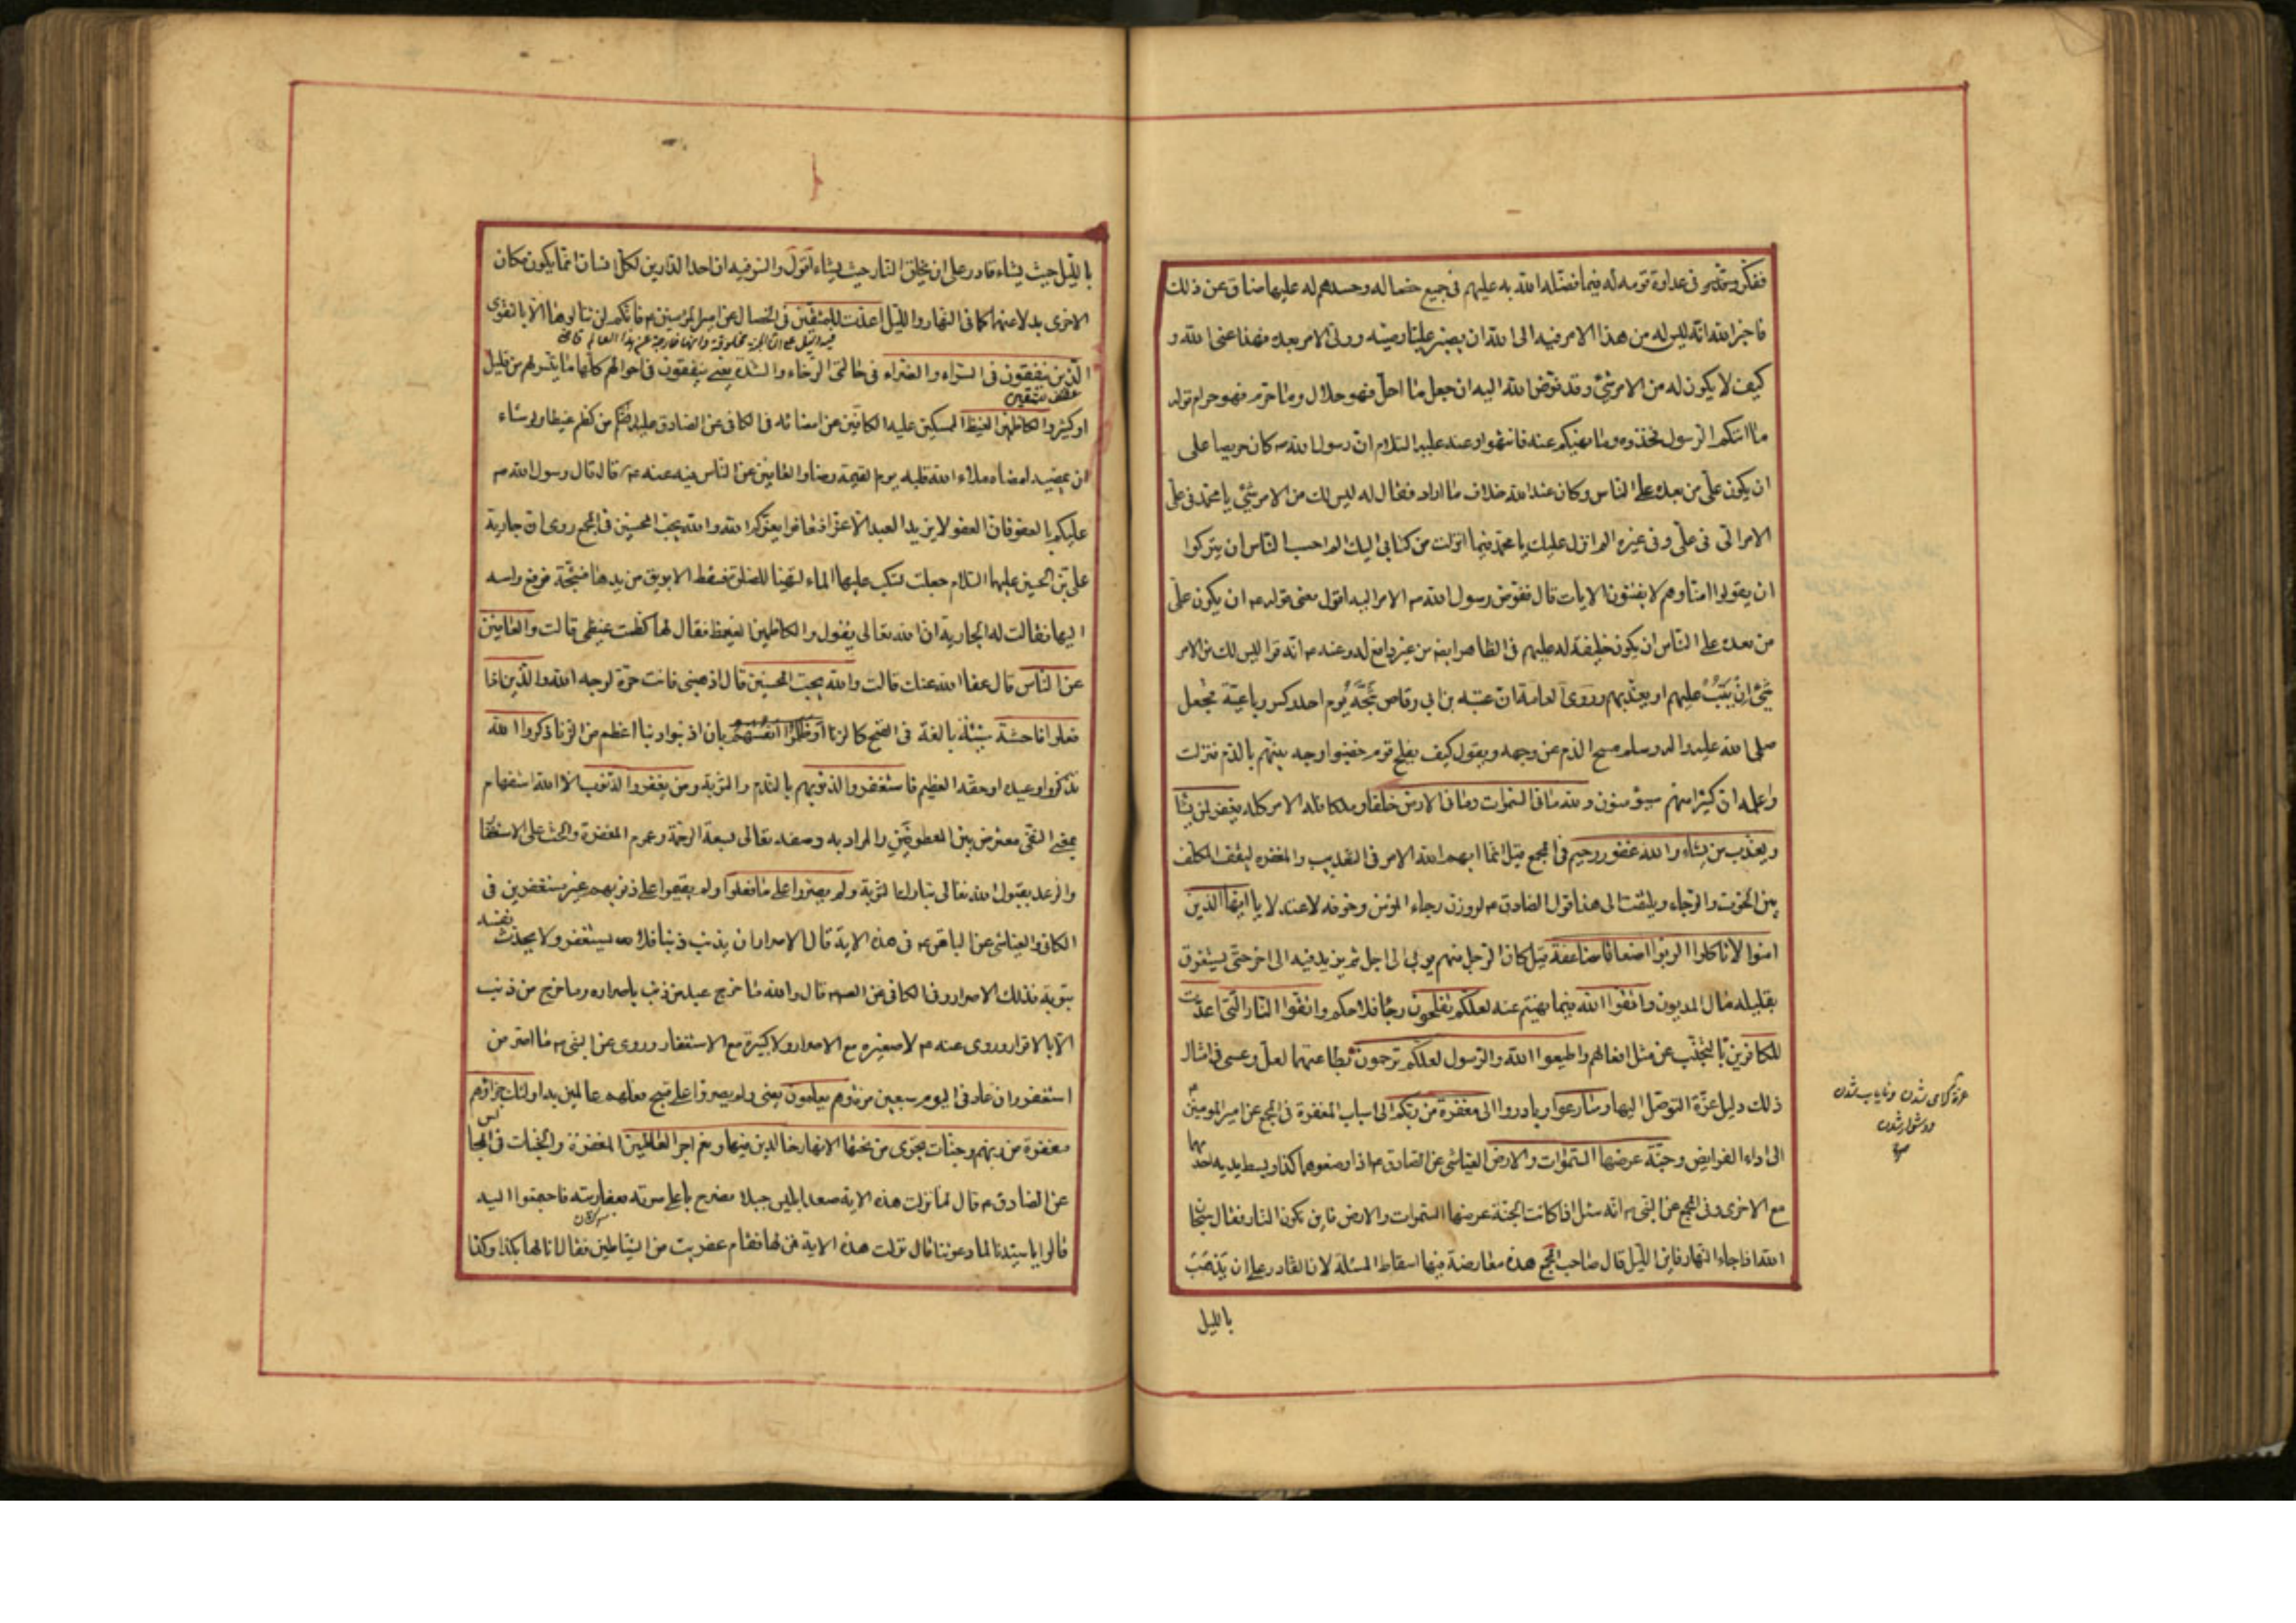 ففكر في عداوة قومه له فيما فضله الله به عليهم في جميع خصاله وحسدهم له عليها ضاق عن ذلك
فاخبر الله انه ليس له من هذا الامر شيء انما الامر فيه الى الله ان يصير عليا وصيه وولي الامر بعده فهذا عنى الله و
كيف لا يكون له من الامر شيء وقد فوض الله اليه ان جعل ما احل فهو حلال وما حرم فهو حرام قوله
ما اتيكم الرسول فخذوه وما نهيكم عنه فانتهوا وعنه عليه السلام ان رسول الله ص كان حريصا على
ان يكون علي من بعده على الناس وكان عند الله خلاف ما اراد فقال له ليس لك من الامر شيء يا محمد في علي
الامر الي في علي وفي غيره الم انزل عليك يا محمد فيما انزلت من كتابي اليك الم احسب الناس ان يتركوا
ان يقولوا امنا وهم لا يفتنون الايات قال ففوض رسول الله ص الامر اليه اقول معنى قوله ع ان يكون علي
من بعده على الناس ان يكون خليفة له عليهم في الظاهر ايضا من غير دافع له وعنه ع انه قرا ليس لك من الامر
شيء ان يتب عليهم او يعذبهم وروى العامة ان عتبة بن ابي وقاص شجه يوم احد وكسر رباعيته فجعل
صلى الله عليه واله وسلم يمسح الدم عن وجهه ويقول كيف يفلح قوم خضبوا وجه نبيهم بالدم فنزلت
واعلمه ان كثيرا منهم سيؤمنون ولله ما في السموات وما في الارض خلقا وملكا فله الامر كله يغفر لمن يشا
ويعذب من يشاء والله غفور رحيم في المجمع قيل انما ابهم الله الامر في التعذيب والمغفرة ليقف المكلف
بين الخوف والرجاء ويلتفت الى هذا قول الصادق ع لو وزن رجاء المؤمن وخوفه لاعتدلا يا ايها الذين
امنوا لا تاكلوا الربوا اضعافا مضاعفة قيل كان الرجل منهم يربي الى اجل ثم يزيد فيه الى اخر حتى يستغرق
بقليله مال المديون واتقوا الله فيما نهيتم عنه لعلكم تفلحون رجاء فلاحكم واتقوا النار التي اعدت
للكافرين بالتجنب عن مثل افعالهم واطيعوا الله والرسول لعلكم ترحمون بطاعتهما لعل وعسى في امثال
ذلك دليل عزة التوصل اليها وسارعوا وبادروا الى مغفرة من ربكم الى اسباب المغفرة في المجمع عن امير المؤمنين ع
الى اداء الفرايض وجنة عرضها السموات والارض العياشي عن الصادق ع اذا وضعوهما كذا وبسط يديه احديهما
مع الاخرى وفي المجمع عن النبي ص انه سئل اذا كانت الجنة عرضها السموات والارض فاين تكون النار فقال سبحان
الله اذا جاء النهار فاين الليل قال صاحب المجمع هذه معارضة فيها اسقاط المسئلة لان القادر على ان يذهب
بالليل
عزة كرامى شدن و ناياب شدن
ودشوار شدن
بالليل حيث يشاء قادر على ان يخلق النار حيث يشاء اقول والسر فيه ان احد الدارين لكل انسان انما يكون مكان
الاخرى بدلا عنها كما في النهار والليل اعدت للمتقين في الخصال عن امير المؤمنين ع فانكم لن تنالوها الا بالتقوى
فيه دليل على ان الجنة مخلوقة وانها خارجة عن هذا العالم
الذين ينفقون في السراء والضراء في حالتي الرخاء والشدة يعني ينفقون في احوالهم كلها ما يتسر لهم من قليل
عطف للمتقين
او كثير والكاظمين الغيظ الممسكين عليه الكافين عن امضائه في الكافي عن الصادق عليه السلام من كظم غيظا ولو شاء
ان يمضيه امضاه ملاء الله قلبه يوم القيمة رضاه والعافين عن الناس فيه عنه ع قال قال رسول الله ص
عليكم بالعفو فان العفو لا يزيد العبد الا عزا فتعافوا يعزكم الله والله يحب المحسنين في المجمع روى ان جارية
علي بن الحسين عليهما السلام جعلت تسكب عليه الماء ليتهيا للصلوة فسقط الابريق من يدها فشجه فرفع راسه
اليها فقالت له الجارية ان الله تعالى يقول والكاظمين الغيظ فقال لها كظمت غيظي قالت والعافين
عن الناس قال عفا الله عنك قالت والله يحب المحسنين قال اذهبي فانت حرة لوجه الله والذين اذا
فعلوا فاحشة سيئة بالغة في القبح كالزنا او ظلموا انفسهم بان اذنبوا ذنبا اعظم من الزنا ذكروا الله
تذكروا وعيده او حقه العظيم فاستغفروا لذنوبهم بالندم والتوبة ومن يغفر الذنوب الا الله استفهام
بمعنى النفي معترض بين المعطوفين والمراد به وصفه تعالى بسعة الرحمة وعموم المغفرة والحث على الاستغفا
والوعد بقبول الله تعالى التوبة ولم يصروا على ما فعلوا ولم يقيموا على ذنوبهم غير مستغفرين في
الكافي والعياشي عن الباقر ع في هذه الاية قال الاصرار ان يذنب ذنبا فلا يستغفر ولا يحدث نفسه
بتوبة فذلك الاصرار وفي الكافي عن الص ع قال والله ما خرج عبد من ذنب باصرار وما خرج من ذنب
الا بالاقرار وروى عنه ع لا صغيرة مع الاصرار ولا كبيرة مع الاستغفار وروى عن النبي ص ما اصر من
استغفر وان عاد في اليوم سبعين مرة وهم يعلمون يعني ولم يصروا على قبيح فعلهم عالمين به اولئك جزاؤهم
مغفرة من ربهم وجنات تجري من تحتها الانهار خالدين فيها ونعم اجر العاملين المغفرة والجنات في المجالس
عن الصادق ع قال لما نزلت هذه الاية صعد ابليس جبلا فصرخ باعلى صوته بعفاريته فاجتمعوا اليه
قالوا يا سيدنا لما دعوتنا قال نزلت هذه الاية فمن لها فقام عفريت من الشياطين فقال انا لها بكذا وكذا